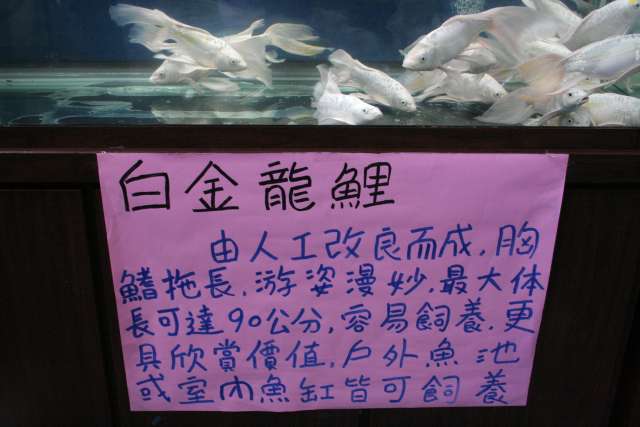 白金龍鯉
由人工改良而成,胸
鰭拖長,游姿漫妙,最大体
長可達90公分,容易飼養,更
具欣賞價值,戶外魚池
或室內魚缸皆可飼養